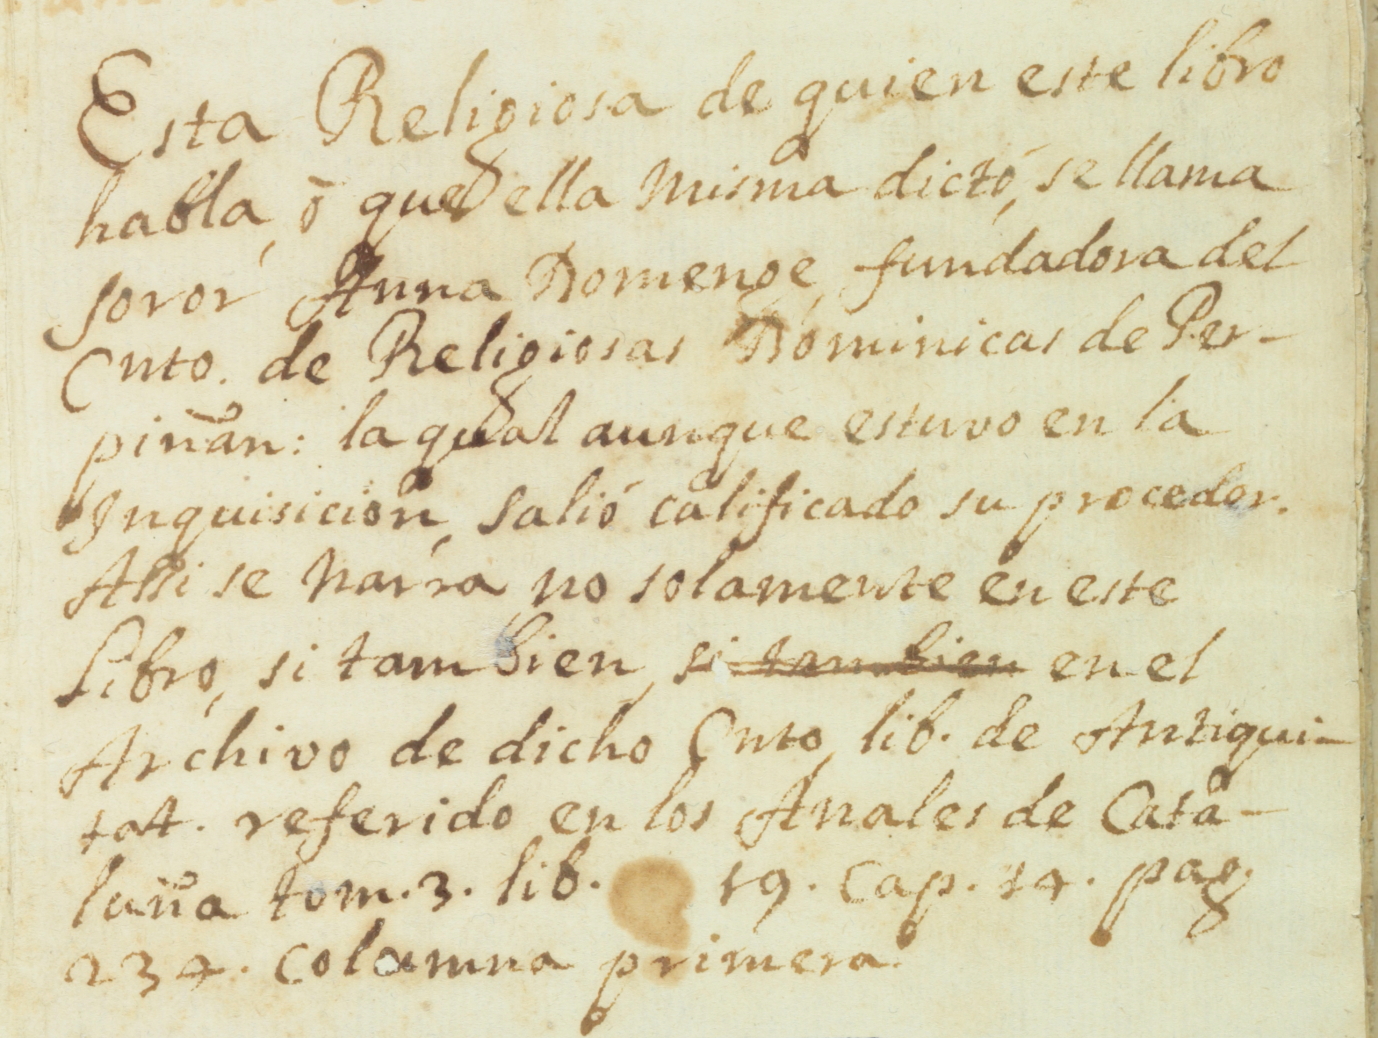 Esta Religiosa de quien este libro
habla, ò que ella misma dictó, se llama
soror Anna Domenge, fundadora del
Cnto. de Religiosas Dominicas de Per-
piñan: la qual aunque estuvo en la
Inquisicion, salió calificado su proceder.
Assi se narra, no solamente en este
Libro, si tambien, si tambien en el
Archivo de dicho Cnto, lib. de Antiqui-
tat. referido en los Anales de Cata-
luña tom. 3. lib. 19. Cap. 14. pag.
234. columna primera.